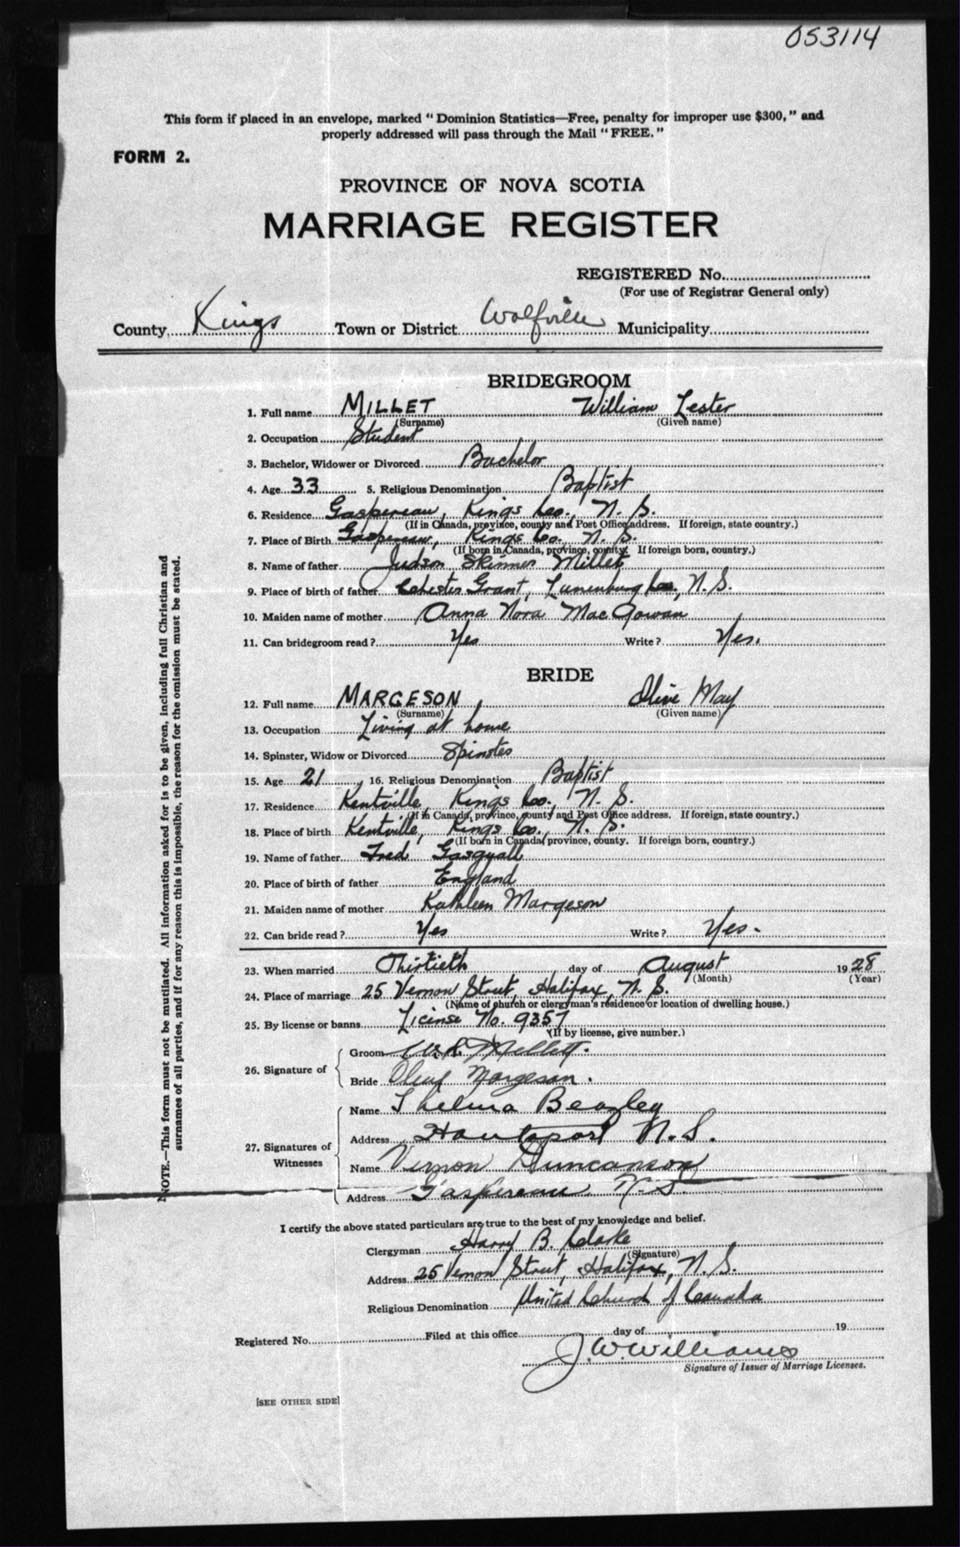 053114
This form if placed in an envelope, marked "Dominion Statistics—Free, penalty for improper use $300," and
properly addressed will pass through the Mail "FREE."
FORM 2.
PROVINCE OF NOVA SCOTIA
MARRIAGE REGISTER
REGISTERED No.
(For use of Registrar General only)
County Kings Town or District Wolfville Municipality
BRIDEGROOM
1. Full name MILLET William Lester
(Surname) (Given name)
2. Occupation Student
3. Bachelor, Widower or Divorced Bachelor
4. Age 33 5. Religious Denomination Baptist
6. Residence Gaspereau, Kings Co., N. S.
(If in Canada, province, county and Post Office address. If foreign, state country.)
7. Place of Birth Gaspereau, Kings Co. N. S.
(If born in Canada, province, county. If foreign born, country.)
8. Name of father Judson Skinner Millet
9. Place of birth of father Chester Grant, Lunenburg Co., N. S.
10. Maiden name of mother Anna Nora MacGowan
11. Can bridegroom read? Yes Write? Yes.
BRIDE
12. Full name MARGESON Olive May
(Surname) (Given name)
13. Occupation Living at home
14. Spinster, Widow or Divorced Spinster
15. Age 21 16. Religious Denomination Baptist
17. Residence Kentville, Kings Co., N. S.
(If in Canada, province, county and Post Office address. If foreign, state country.)
18. Place of birth Kentville, Kings Co., N. S.
(If born in Canada, province, county. If foreign born, country.)
19. Name of father Fred
20. Place of birth of father England
21. Maiden name of mother Kathleen Margeson
22. Can bride read? Yes Write? Yes.
23. When married Thirtieth day of August 1928
(Month) (Year)
24. Place of marriage 25 Vernon Street, Halifax, N. S.
(Name of church or clergyman's residence or location of dwelling house.)
25. By license or banns License No. 9357
(If by license, give number.)
26. Signature of
Groom W. L. Millett.
Bride Margeson.
27. Signatures of Witnesses
Name Thelma Beazley
Address Hantsport N. S.
Name Vernon Duncanson
Address Gaspereau N. S.
I certify the above stated particulars are true to the best of my knowledge and belief.
Clergyman Harry B. Clarke
(Signature)
Address 25 Vernon Street, Halifax, N. S.
Religious Denomination United Church of Canada
Registered No. Filed at this office day of 19
J. W. Williams
Signature of Issuer of Marriage Licenses.
[SEE OTHER SIDE]
NOTE.—This form must not be mutilated. All information asked for is to be given, including full Christian and
surnames of all parties, and if for any reason this is impossible, the reason for the omission must be stated.